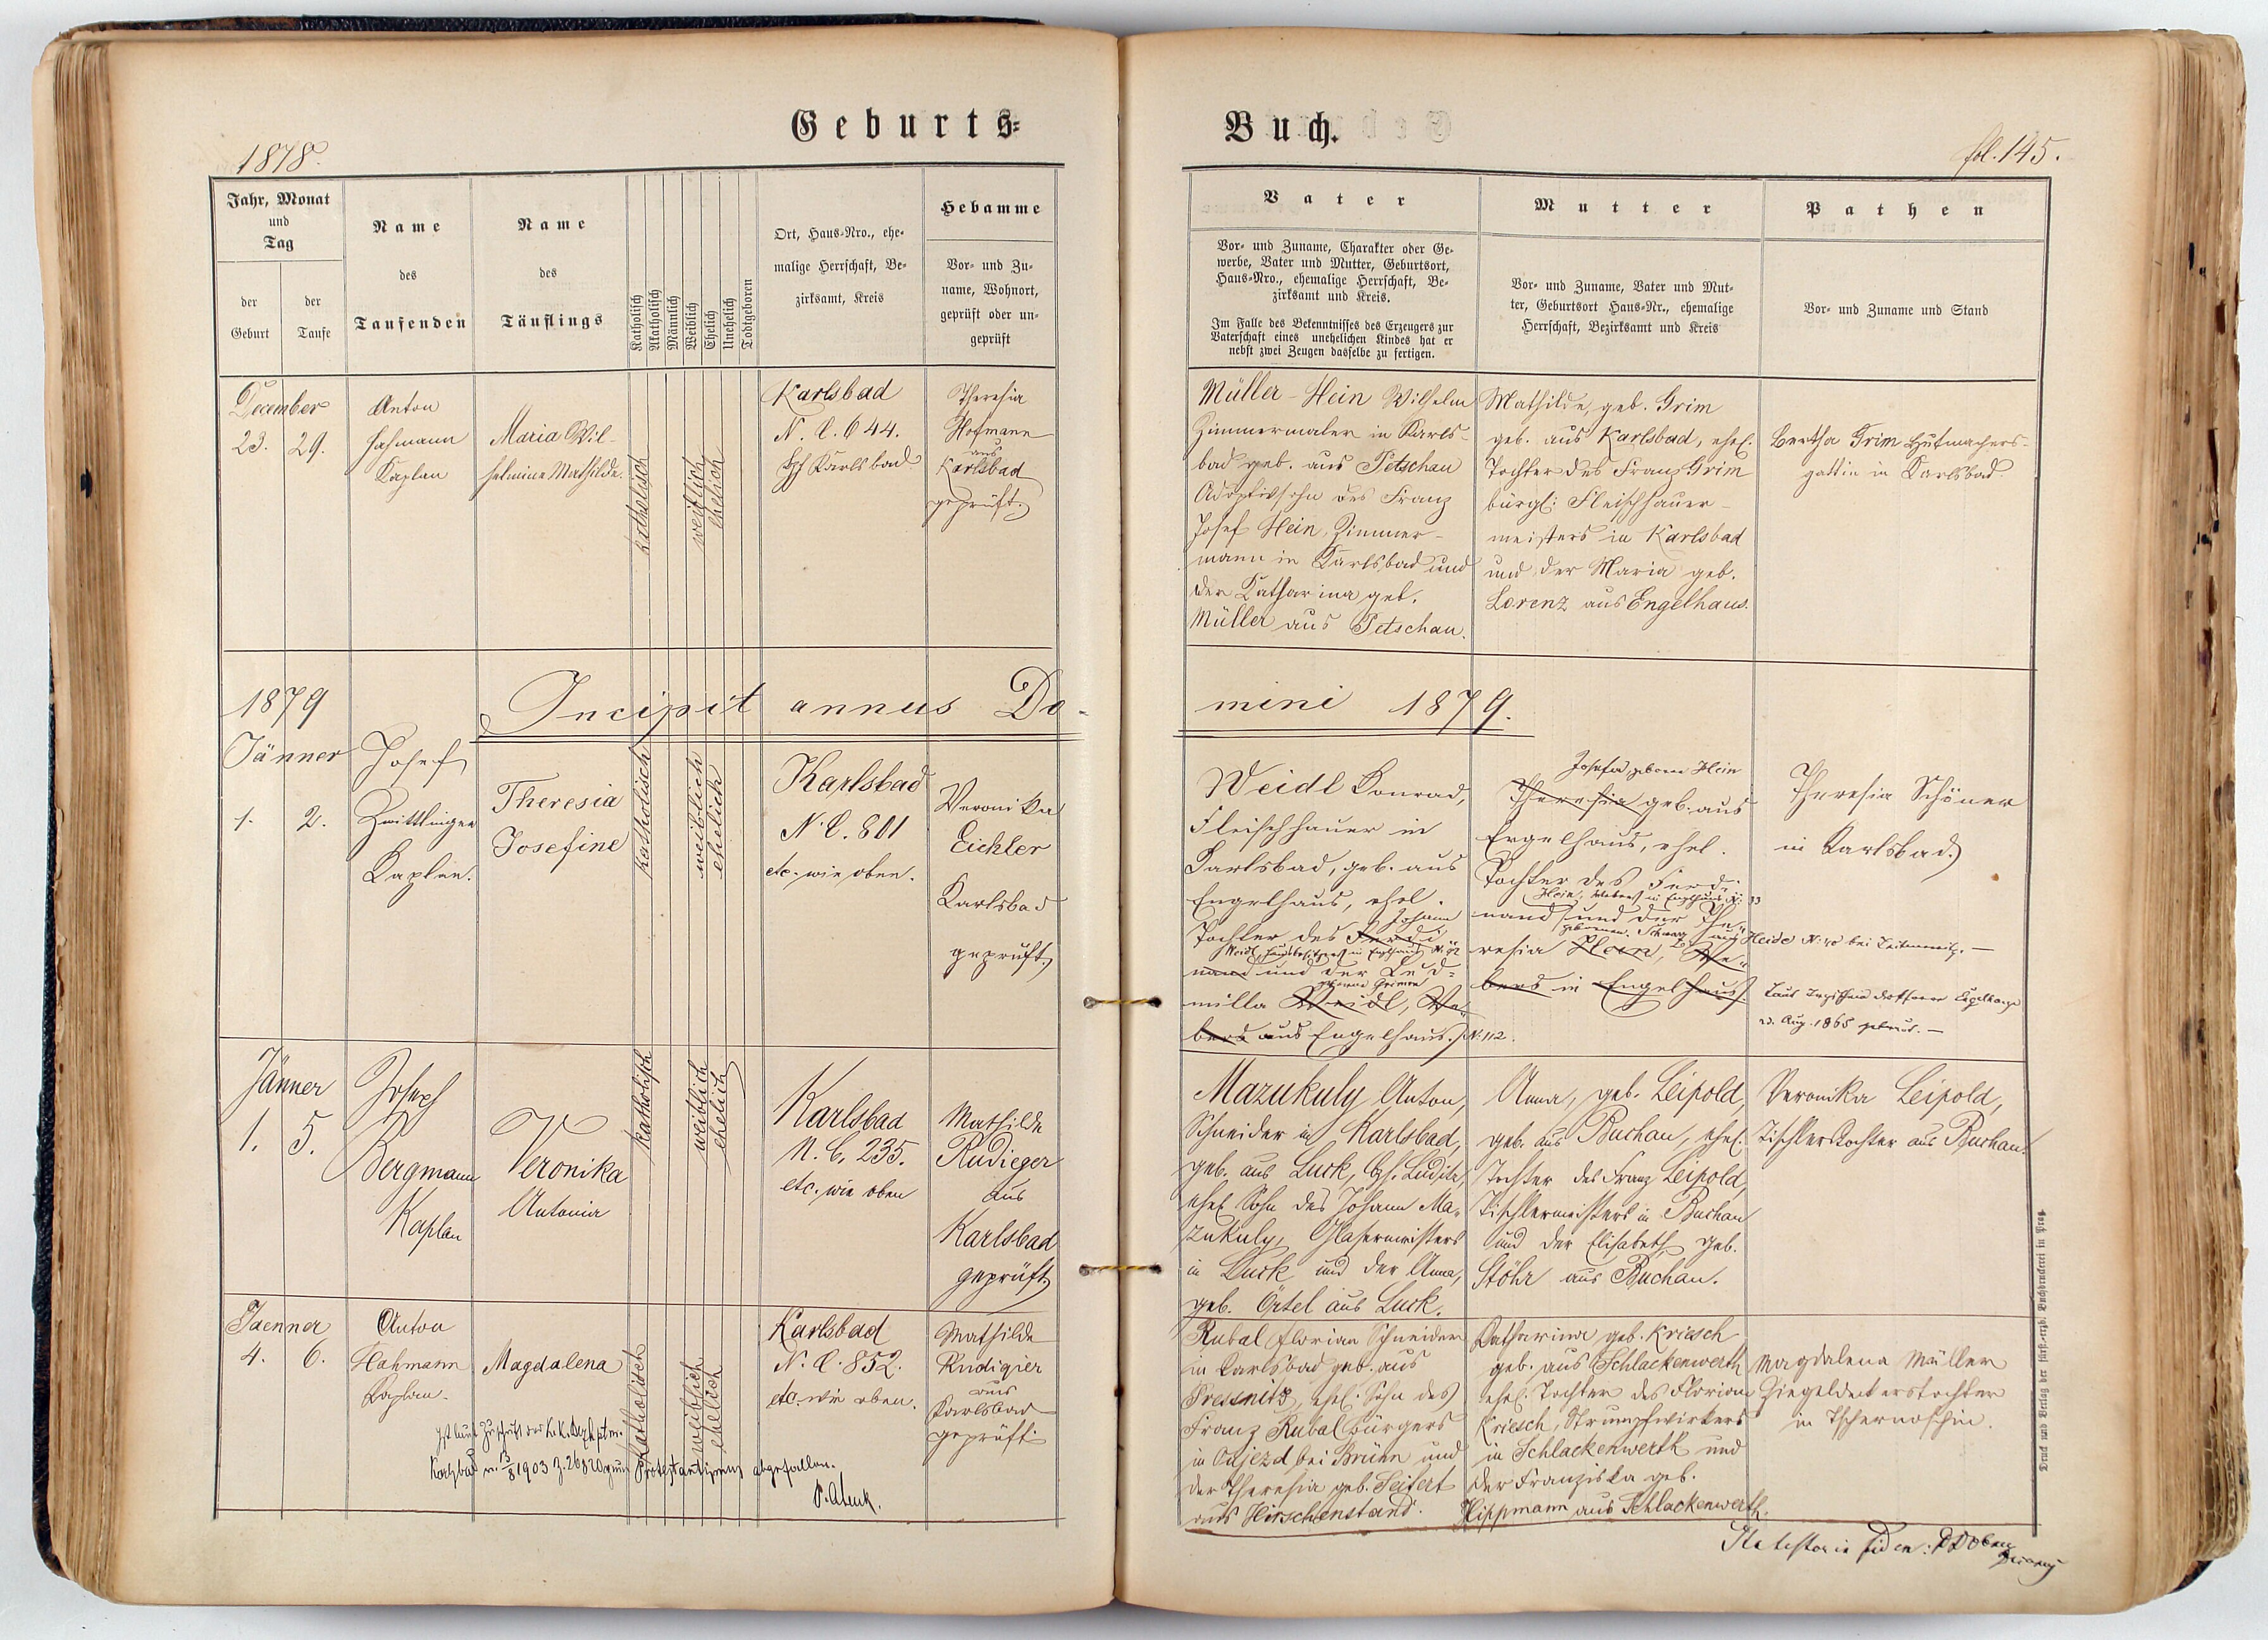 Geburts=
Buch.
1878.
fol. 145.
Jahr, Monat
und
Tag
der
Geburt
der
Taufe
Name
des
Taufenden
Name
des
Täuflings
Katholisch
Akatholisch
Männlich
Weiblich
Ehelich
Unehelich
Todtgeboren
Ort, Haus=Nro., ehe=
malige Herrschaft, Be=
zirksamt, Kreis
Hebamme
Vor= und Zu=
name, Wohnort,
geprüft oder un=
geprüft
Vater
Vor= und Zuname, Charakter oder Ge=
werbe, Vater und Mutter, Geburtsort,
Haus=Nro., ehemalige Herrschaft, Be=
zirksamt und Kreis.
Im Falle des Bekenntnisses des Erzeugers zur
Vaterschaft eines unehelichen Kindes hat er
nebst zwei Zeugen dasselbe zu fertigen.
Mutter
Vor= und Zuname, Vater und Mut=
ter, Geburtsort Haus=Nr., ehemalige
Herrschaft, Bezirksamt und Kreis
Pathen
Vor= und Zuname und Stand
December
23. 29.
Anton
Hahmann
Kaplan
Maria Wil-
helmine Mathilde.
katholisch
weiblich
ehelich
Karlsbad
N. C. 644.
Bzh Karlsbad
Theresia
Hofmann
aus
Karlsbad
geprüft.
Müller-Hein Wilhelm
Zimmermaler in Karls-
bad geb. aus Petschau
Adoptivsohn des Franz
Josef Hein, Zimmer-
mann in Karlsbad und
der Katharina geb.
Müller aus Petschau.
Mathilde, geb. Grim
geb. aus Karlsbad, ehel.
Tochter des Franz Grim
bürgl: Fleischhauer-
meisters in Karlsbad
und der Maria geb.
Lorenz aus Engelhaus.
Bertha Grim Hutmachers-
gattin in Karlsbad.
1879
Incipit annus Do-
mini 1879.
Jänner
1. 2.
Josef
Zwittlinger
Kaplan.
Theresia
Josefine
katholisch
weiblich
ehelich
Karlsbad
N. C. 801
etc. wie oben.
Veronika
Eichler
Karlsbad
geprüft.
Weidl Konrad,
Fleischhauer in
Karlsbad, geb. aus
Engelhaus, ehel.
Johann
Tochter des Ferdi
Weidl, Hausbesitzers in Engelhaus
nand und der Lud=
milla Weidl, We=
bers aus Engelhaus. N. 112.
Josefa, geborne Hein
Theresia geb. aus
Engelhaus, ehel.
Tochter des Ferdi=
Hein, Webers in Engelhaus
nand und der The=
resia Hein, We=
aus Heide N. 40 bei Leitmeritz.
bers in Engelhaus.
Theresia Schöner
in Karlsbad.
23. Aug. 1865 getraut.
Jänner
1. 5.
Josef
Bergmann
Kaplan
Veronika
Antonia
katholisch
weiblich
ehelich
Karlsbad
N. C. 235.
etc. wie oben
Mathilde
Rudieger
aus
Karlsbad
geprüft
Mazukuly Anton,
Schneider in Karlsbad,
geb. aus Luck, Bzh. Luditz,
ehel. Sohn des Johann Ma-
zukuly, Glasermeisters
in Luck und der Anna,
geb. Örtel aus Luck.
Anna, geb. Leipold,
geb. aus Buchau, ehel.
Tochter des Franz Leipold,
Tischlermeisters in Buchau
und der Elisabeth geb.
Stöhr aus Buchau.
Veronika Leipold,
Tischlerstochter aus Buchau.
Jaenner
4. 6.
Anton
Hahmann
Kaplan.
Magdalena
Katholisch
weiblich
ehelich
Karlsbad
N. C. 852.
etc. wie oben.
Mathilde
Rudigier
aus
Karlsbad
geprüft
Ist laut Zuschrift der k. k. Bezhptm.
Karlsbad v. 13/8 1903 Z. 26820 zum Protestantismus abgefallen.
Rubal Florian Schneider
in Karlsbad geb. aus
Pressnitz, ehel. Sohn des
Franz Rubal Bürgers
in Oujezd bei Brünn und
der Theresia geb. Seifert
aus Hirschenstand.
Katharina geb. Kriesch
geb. aus Schlackenwerth
ehel. Tochter des Florian
Kriesch, Strumpfwirkers
in Schlackenwerth und
der Franziska geb.
Hippmann aus Schlackenwerth.
Magdalena Müller
Ziegeldeckerstochter
in Tschernoschin
Druck und Verlag der fürst.=erzb. Buchdruckerei in Prag.